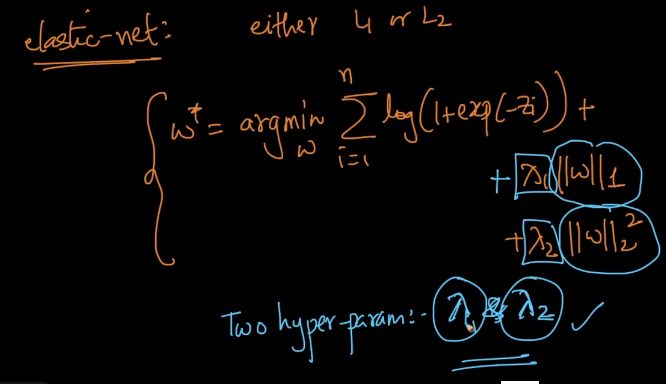 elastic-net: either L1 or L2
w* = argmin_w Σ_{i=1}^{n} log(1+exp(-zi)) +
+ λ1 ||w||_1
+ λ2 ||w||_2^2
Two hyper-param:- λ1 & λ2 ✓